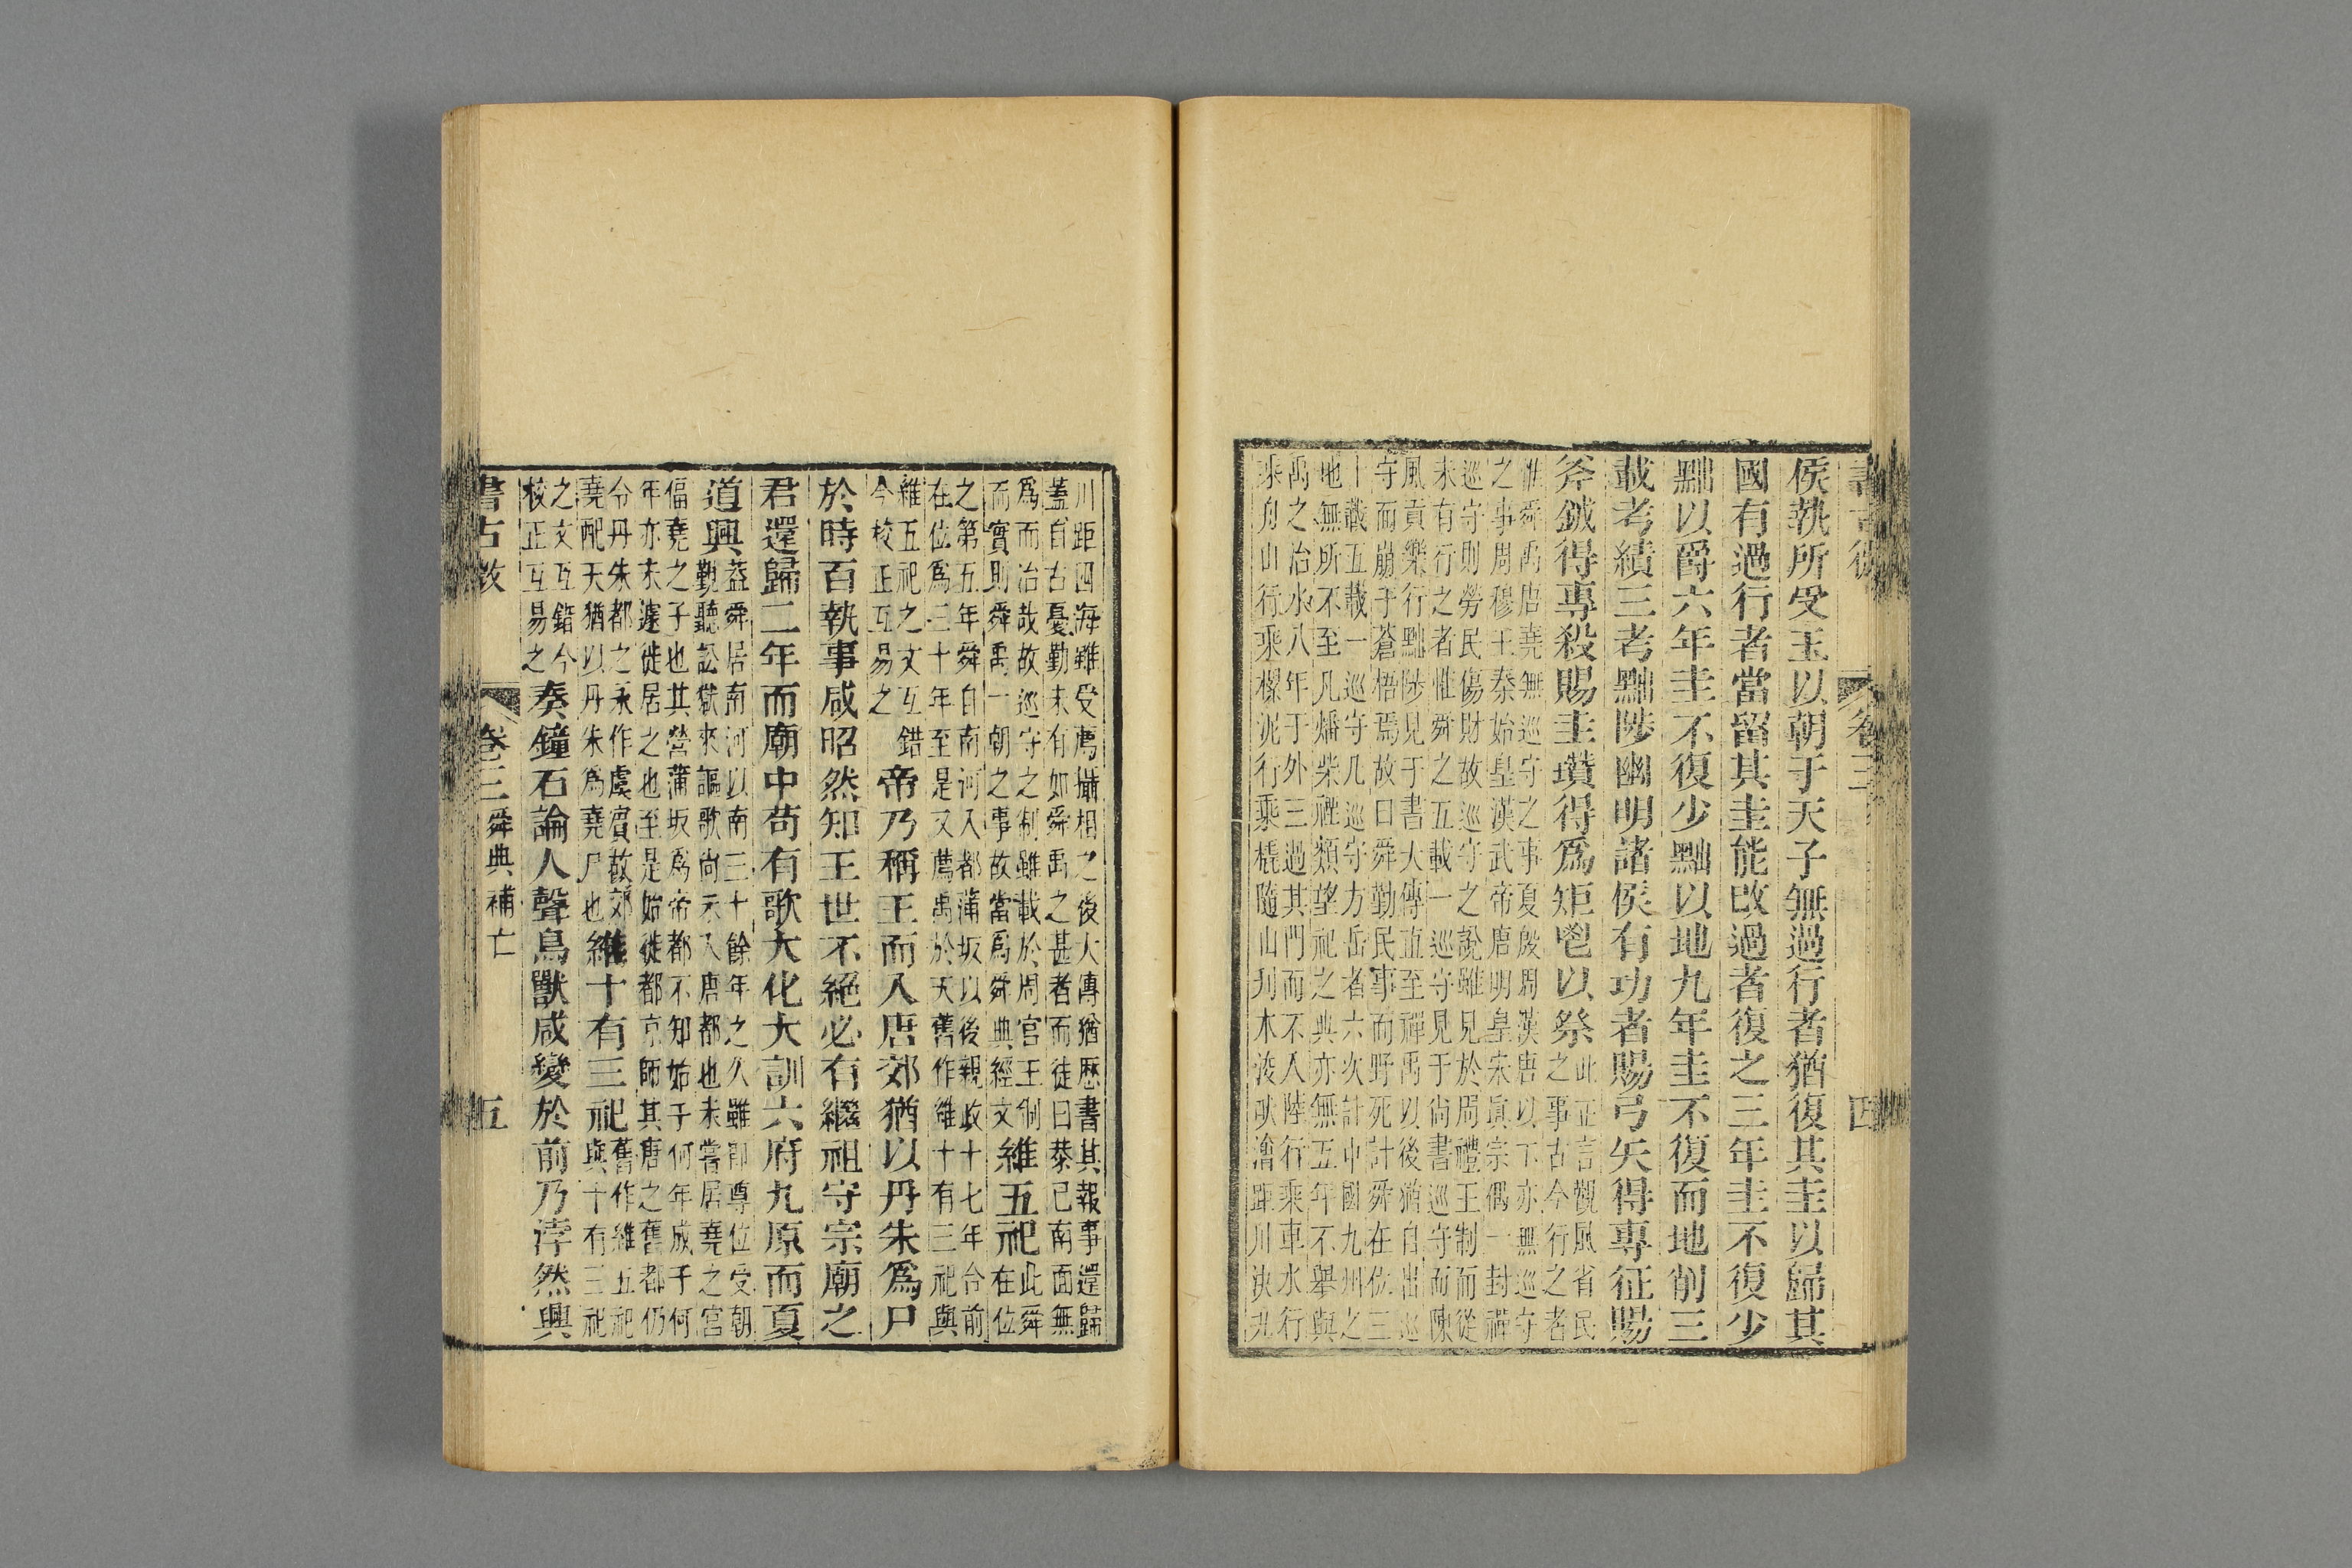 侯執所受圭以朝于天子無過行者猶復其圭以歸其
國有過行者當留其圭能改過者復之三年圭不復少
黜以爵六年圭不復少黜以地九年圭不復而地削三
載考績三考黜陟幽明諸侯有功者賜弓矢得專征賜
斧鉞得專殺賜圭瓚得爲矩鬯以祭
此正言觀風省民
之事古今行之者
惟舜禹唐堯無巡守之事夏殷周漢唐以下亦無巡守
之事周穆王秦始皇漢武帝唐明皇宋眞宗偶一封禪
巡守則勞民傷財故巡守之說雖見於周禮王制而從
未有行之者惟舜之五載一巡守見于尚書巡守而陳
風貢樂行黜陟見于書大傳直至禪禹以後猶自出巡
守而崩于蒼梧焉故曰舜勤民事而野死計舜在位三
十載五載一巡守凡巡守方岳者六次計中國九州之
地無所不至凡燔柴禋類望祀之典亦無五年不舉與
禹之治水八年于外三過其門而不入陸行乘車水行
乘舟山行乘樏泥行乘橇隨山刋木浚畎澮距川決九
川距四海雖受薦攝相之後大傳猶歷書其報事還歸
蓋自古憂勤未有如舜禹之甚者而徒曰恭己南面無
爲而治哉故巡守之制雖載於周官王制
而實則舜禹一朝之事故當爲舜典經文
維五祀
此舜
在位
之第五年舜自南河入都蒲坂以後親政十七年合前
在位爲三十年至是又薦禹於天舊作維十有三祀與
維五祀之文互錯
今校正互易之
帝乃稱王而入唐郊猶以丹朱爲尸
於時百執事咸昭然知王世不絕必有繼祖守宗廟之
君還歸二年而廟中苟有歌大化大訓六府九原而夏
道興
蓋舜居南河以南三十餘年之久雖卽尊位受朝
勤聽訟獄來謳歌尚未入唐都也未嘗居堯之宮
偪堯之子也其營蒲坂爲帝都不知始于何年成于何
年亦未遽徙居之也至是始徙都京師其唐之舊都仍
令丹朱都之永作虞賓故郊
堯配天猶以丹朱爲堯尸也
維十有三祀
舊作維五祀
與十有三祀
之文互錯今
校正互易之
奏鐘石論人聲鳥獸咸變於前乃淳然興
卷三
舜典補亡
五